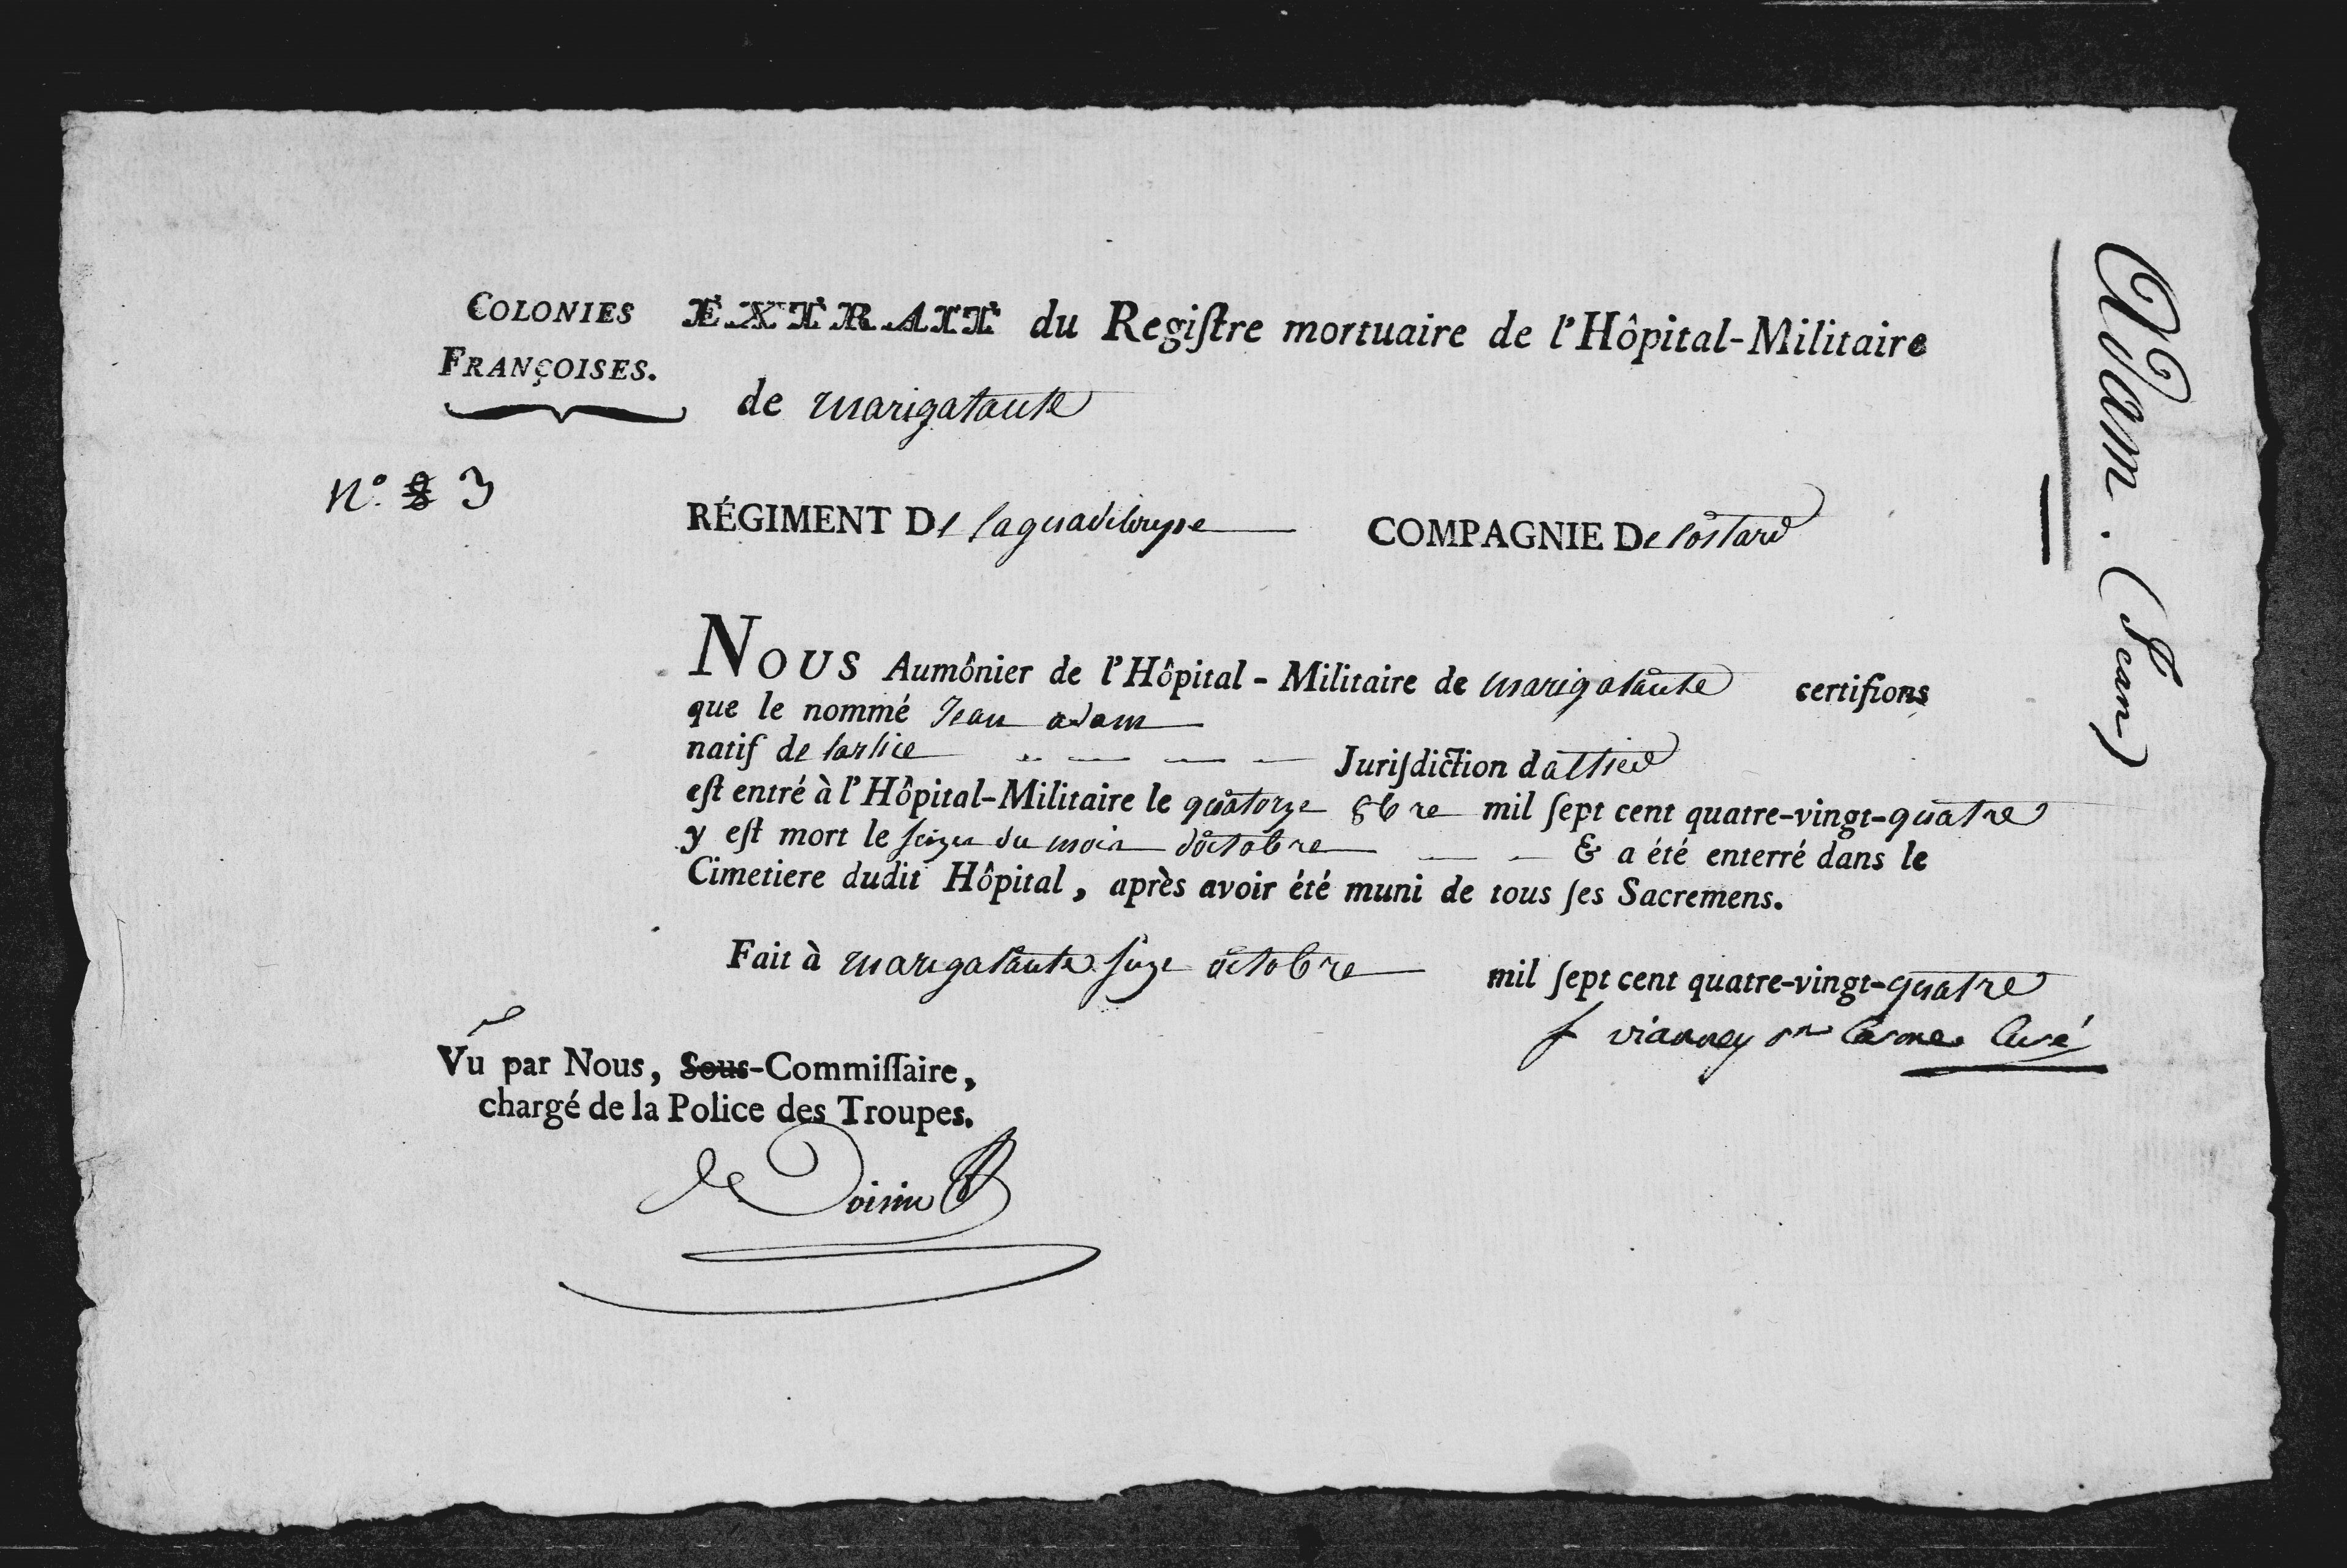 COLONIES
FRANÇOISES.
EXTRAIT du Regiſtre mortuaire de l'Hôpital-Militaire
de marigalante
N.° 3
RÉGIMENT De laguadeloupe COMPAGNIE De
NOUS Aumônier de l'Hôpital-Militaire de marigalante certifions
que le nommé Jean adam
natif de Juriſdiction
eſt entré à l'Hôpital-Militaire le quatorze 8bre mil ſept cent quatre-vingt-quatre
y eſt mort le du mois doctobre & a été enterré dans le
Cimetiere dudit Hôpital, après avoir été muni de tous ſes Sacremens.
Fait à marigalante octobre mil ſept cent quatre-vingt-quatre
f vianney Curé
Vu par Nous, Sous-Commiſſaire,
chargé de la Police des Troupes.
de
Adam. (Jean)